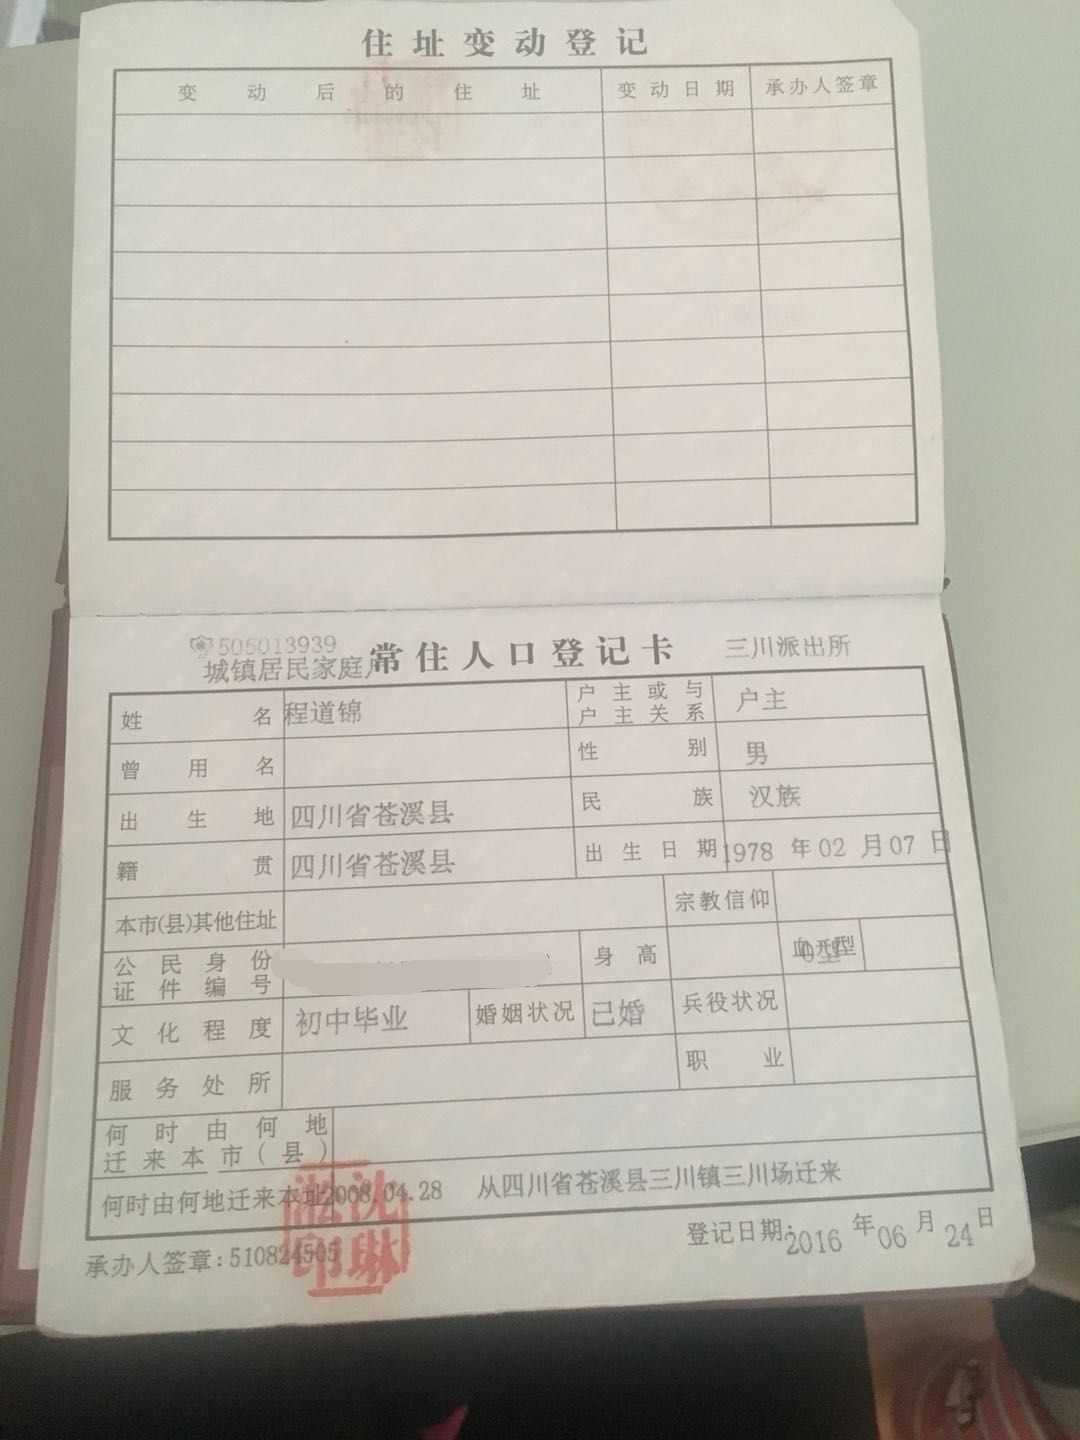 住址变动登记
变动后的住址 变动日期 承办人签章
505013939
城镇居民家庭户 常住人口登记卡 三川派出所
姓名 程道锦 户主或与户主关系 户主
曾用名 性别 男
出生地 四川省苍溪县 民族 汉族
籍贯 四川省苍溪县 出生日期 1978年02月07日
本市(县)其他住址 宗教信仰
公民身份证件编号 身高 血型 O型
文化程度 初中毕业 婚姻状况 已婚 兵役状况
服务处所 职业
何时由何地迁来本市(县)
何时由何地迁来本址 2008.04.28 从四川省苍溪县三川镇三川场迁来
承办人签章:510824505 登记日期:2016年06月24日